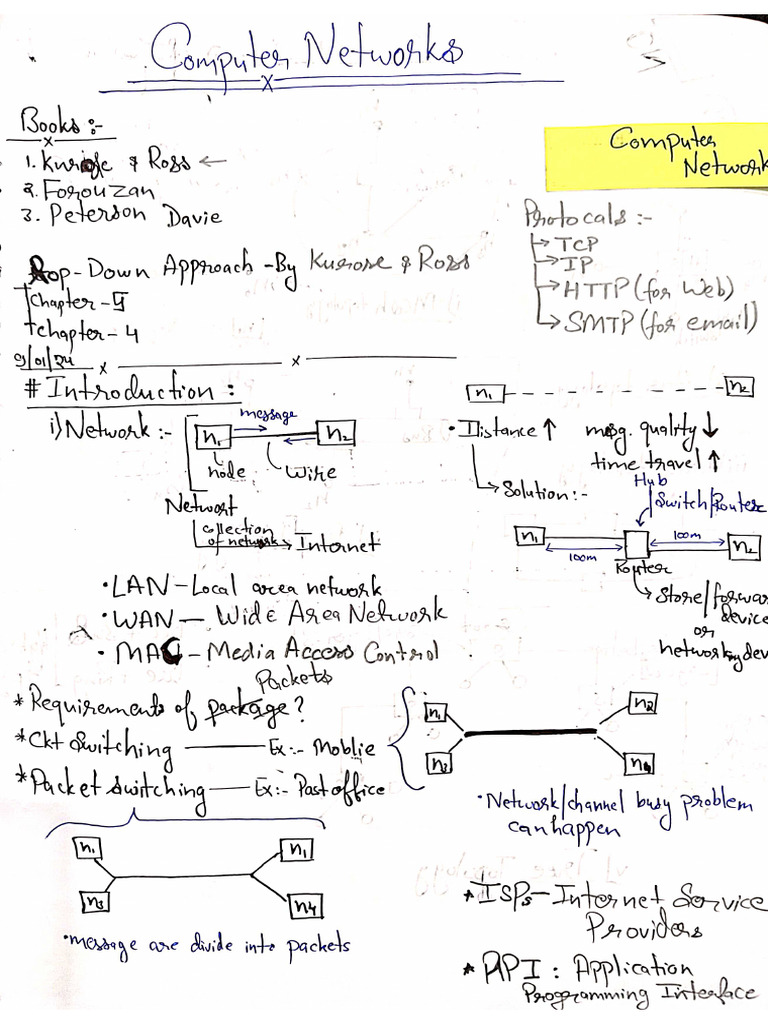 Computer Networks
x
Books :-
x
1. Kurose & Ross ←
2. Forouzan
3. Peterson Davie
Computer
Network
Protocals :-
↳ TCP
↳ IP
↳ HTTP (for web)
↳ SMTP (for email)
Top-Down Approach - By Kurose & Ross
Chapter - 5
Chapter - 4
9/01/24 x x
# Introduction :
i) Network :-
message
n1 n2
node wire
Network
collection
of network → Internet
n1 n2
• Distance ↑ msg. quality ↓
time travel ↑
↳ Solution :-
Hub
Switch/Router
n1 100m 100m n2
Router
↳ Store/forwar
device
or
networking dev
• LAN - Local area network
• WAN — Wide Area Network
• MAC - Media Access Control
Packets
* Requirements of package ?
* Ckt Switching — Ex :- Moblie
* Packet switching — Ex :- Post office
n1 n2
n3 n4
• Network/channel busy problem
can happen
n1 n1
n3 n4
• message are divide into packets
* ISPs - Internet Service
Providers
* API : Application
Programming Interface